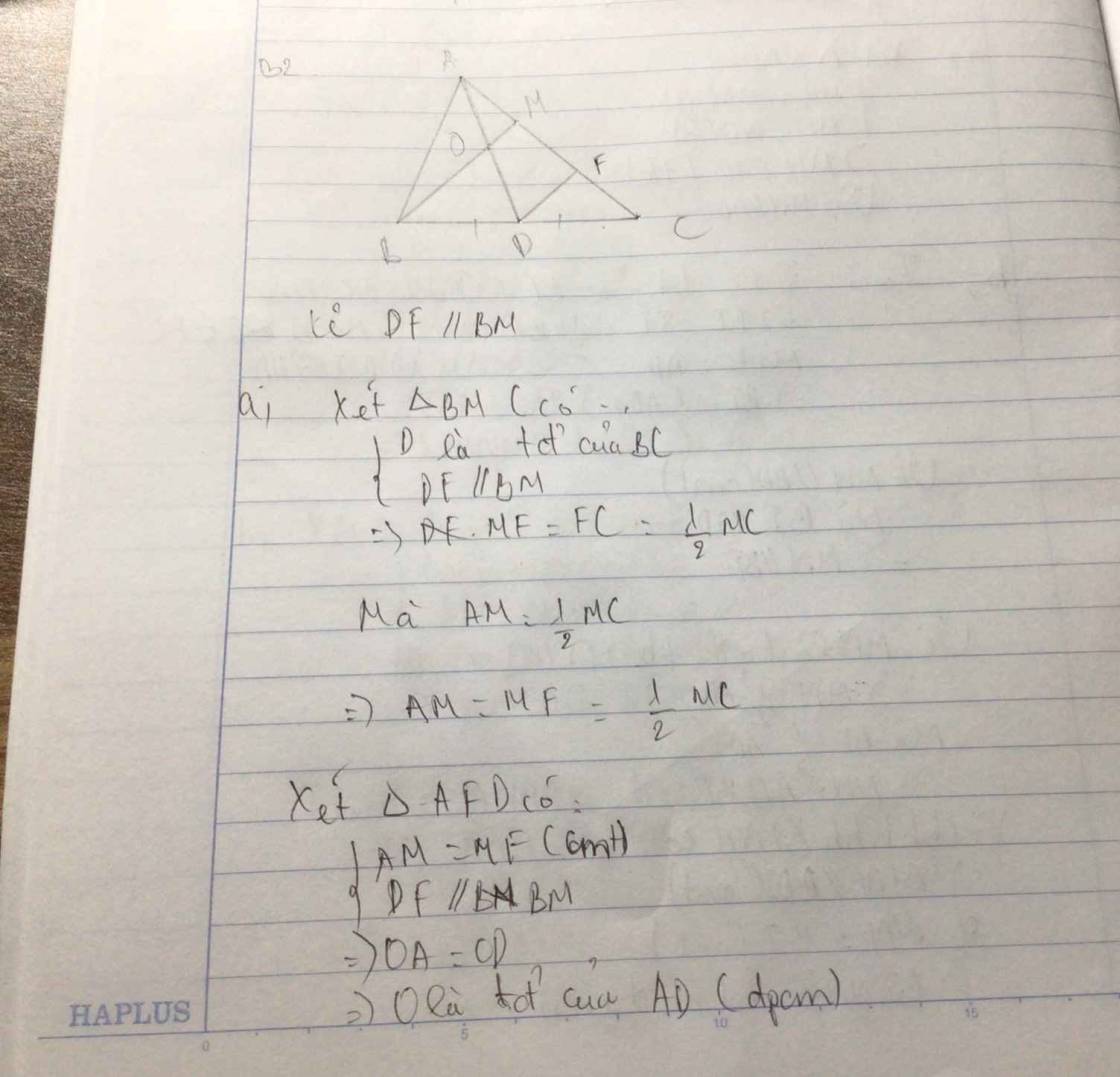 B2
A
M
O
F
B
D
C
kẻ DF // BM
a, Xét △BMC có:
D là tđ của BC
DF // BM
=> MF = FC = 1/2 MC
Mà AM = 1/2 MC
=> AM = MF = 1/2 MC
Xét △ AFD có:
AM = MF (cmt)
DF // BM
=> OA = OD
=> O là tđ của AD (đpcm)
HAPLUS
0
5
10
15